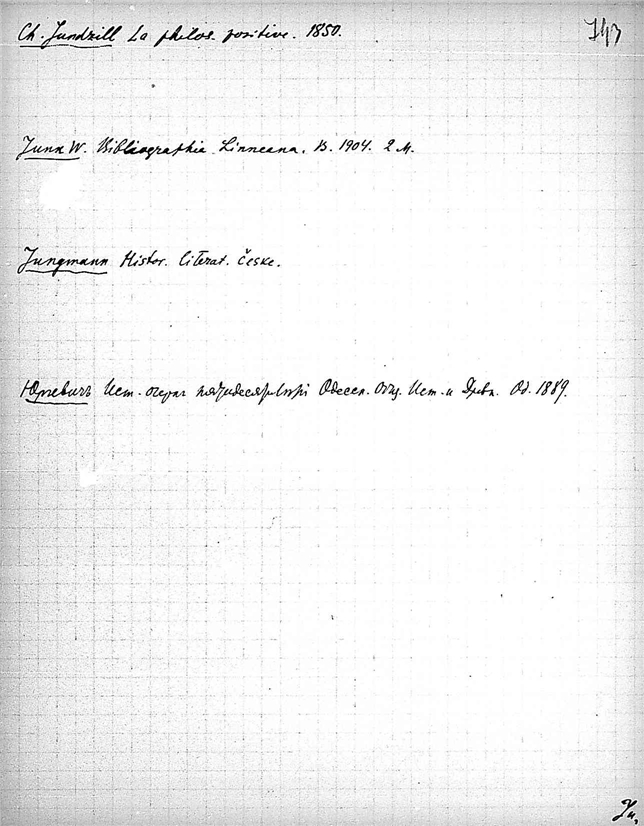 Ch. Jundzill La philos. positive. 1850.
Junk W. Bibliographia Linneana. B. 1904. 2 M.
Jungmann Histor. literat. česke.
Юргевичъ Ист. очеркъ пятидесятилѣтія Одесск. Общ. Ист. и Древн. Од. 1889.
Ju.